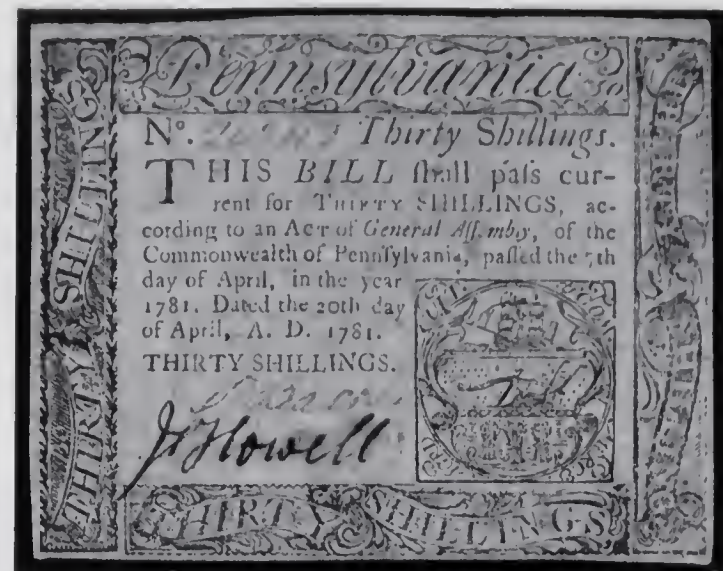 Pennsylvania
THIRTY SHILLINGS
Nº. Thirty Shillings.
THIS BILL ſhall paſs cur-
rent for THIRTY SHILLINGS, ac-
cording to an ACT of General Aſſembly, of the
Commonwealth of Pennſylvania, paſſed the 7th
day of April, in the year
1781. Dated the 20th day
of April, A. D. 1781.
THIRTY SHILLINGS.
J Howell
THIRTY SHILLINGS